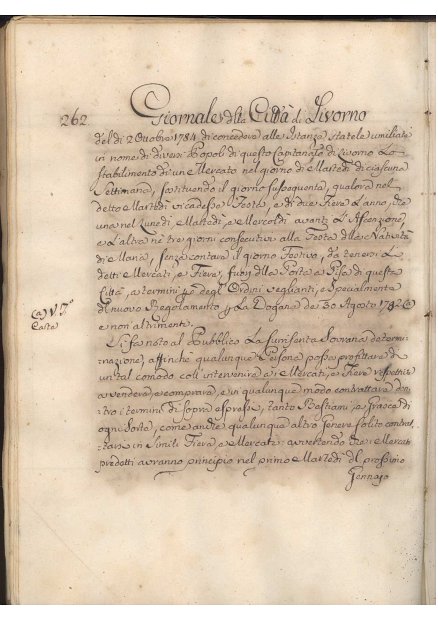 262. Giornale della Città di Livorno
del dì 2. Ottobre 1784. di concedere alle Istanze statele umiliate
in nome di diversi Popoli di questo Capitanato di Livorno Lo
stabilimento di un Mercato nel giorno di Martedì di ciascuna
Settimana, sostituendo il giorno susseguente, qualora nel
detto Martedì vi cadesse Festa, e di due Fiere L'anno, che
una nel Lunedì, Martedì, e Mercoldì avanti L'Ascenzione,
e L'altra ne tre giorni consecutivi alla Festa della Natività
di Maria, senza contare il giorno Festivo, da tenersi L
detti Mercati, e Fiere, fuori della Porta a Pisa di questa
Città, a termini però degl'Ordini veglianti, e specialmente
di nuovo Regolamento per La Dogana de' 30. Agosto
e non altrimenti.
Si fa noto al Pubblico La surriferita Sovrana determi-
nazione, affinchè qualunque Persona possa profittare di
un tal comodo coll'intervenire a i Mercati, e Fiere respettive
a vendere, e comprare, e in qualunque modo contrattare den-
tro i termini di sopra espressi, tanto Bestiami, e Grasce di
ogni sorta, come anche qualunque altro genere solito contrat-
tarsi in simili Fiere, e Mercati: avvertendo che i Mercati
predetti avranno principio nel primo Martedì del prossimo
Gennajo